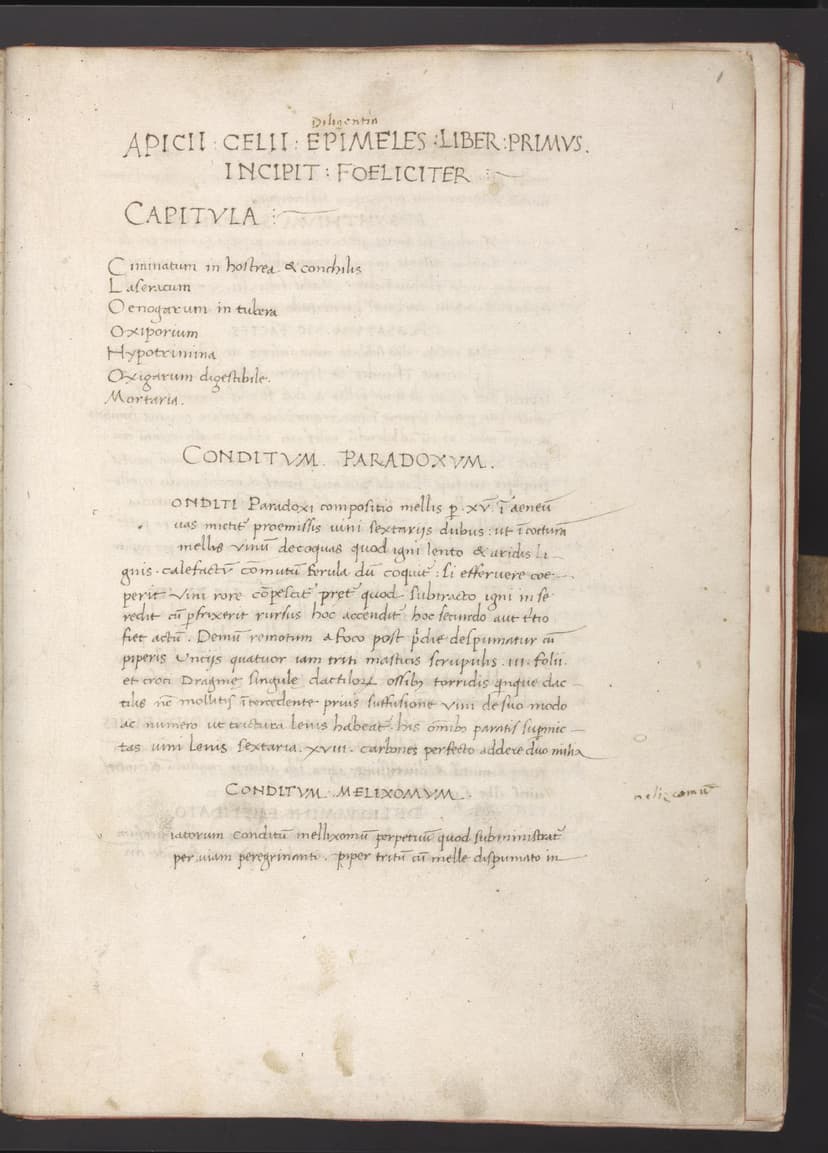 1
Diligentia
APICII : CELII : EPIMELES : LIBER : PRIMVS .
INCIPIT : FOELICITER :~
CAPITVLA :~
Ciminatum in hostrea & conchilis
Laseratum
Oenogarum in tubera
Oxiporium
Hypotrimina
Oxigarum digestibile .
Mortaria .
CONDITVM . PARADOXVM .
ONDITI Paradoxi compositio mellis p̱ . XV . ī aeneū
uas mictit᷑ proemissis uini sextarijs dubus : ut ī cocturā
mellis vinū decoquas quod igni lento & aridis li
gnis . calefactū cōmutū ferula dū coquit᷑ : si efferuere coe
perit vini rore cōpescit᷑ pret᷑ quod subtracto igni in se
redit cū ꝑfrixerit rursus hoc accendit᷑ hoc secundo aut t̄tio
fiet actū . Demū remotum a foco post p̄die despumatur cū
piperis Vncijs quatuor iam triti masticis scrupulis . III . folii .
et croci Dragmę singulę dactiloꝝ ossibꝫ torridis q̄nque dac
tilis nē mollitis ītercedente prius suffusione vini de suo modo
ac numero ut trictura lenis habeat᷑ . his om̄ibꝫ paratis suꝑmic
tas uini lenis sextaria . XVIII . carbones perfecto addere duo milia
CONDITVM . MELIXOMVM .
meliz comū
iatorum conditū mellixomū perpetuū quod subministrat᷑
per uiam peregrinanti . piper tritū cū melle dispumato in